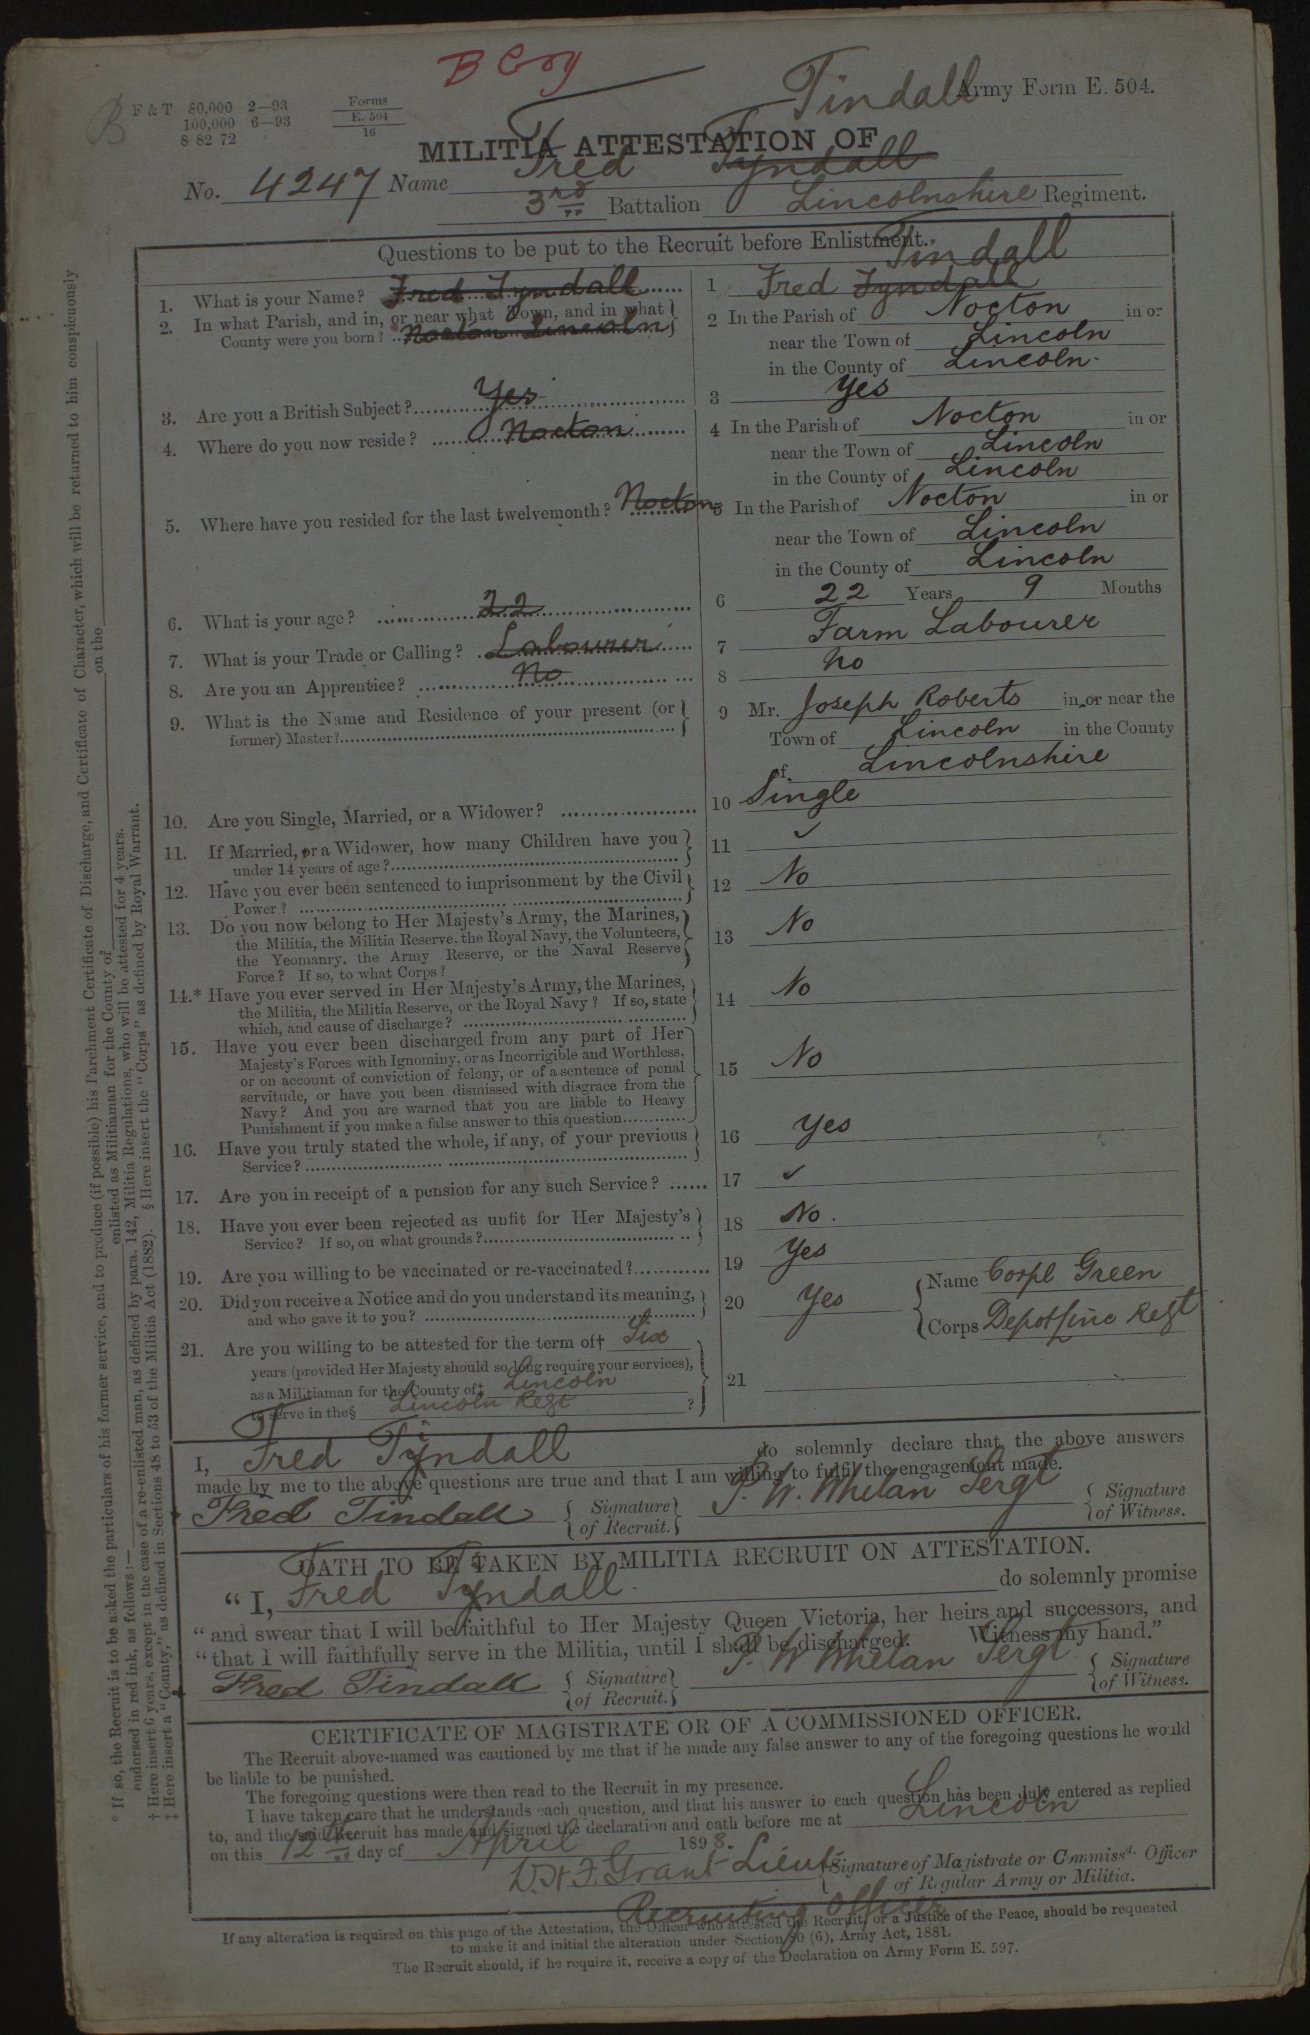 B Coy
Tindall
Army Form E. 504.
F & T 80,000 2—93
100,000 6—93
8 82 72
Forms
E. 504
16
B
MILITIA ATTESTATION OF
No. 4247 Name Fred Tyndall
3rd Battalion Lincolnshire Regiment.
Questions to be put to the Recruit before Enlistment.
Tindall
1. What is your Name? Fred Tyndall
1 Fred Tyndall
2. In what Parish, and in, or near what Town, and in what
County were you born? Nocton Lincoln
2 In the Parish of Nocton in or
near the Town of Lincoln
in the County of Lincoln
3. Are you a British Subject? Yes
3 Yes
4. Where do you now reside? Nocton
4 In the Parish of Nocton in or
near the Town of Lincoln
in the County of Lincoln
5. Where have you resided for the last twelvemonth? Nocton
5 In the Parish of Nocton in or
near the Town of Lincoln
in the County of Lincoln
6. What is your age? 22
6 22 Years 9 Months
7. What is your Trade or Calling? Labourer
7 Farm Labourer
8. Are you an Apprentice? No
8 No
9. What is the Name and Residence of your present (or
former) Master?
9 Mr. Joseph Roberts in or near the
Town of Lincoln in the County
of Lincolnshire
10. Are you Single, Married, or a Widower?
10 Single
11. If Married, or a Widower, how many Children have you
under 14 years of age?
11 ✓
12. Have you ever been sentenced to imprisonment by the Civil
Power?
12 No
13. Do you now belong to Her Majesty's Army, the Marines,
the Militia, the Militia Reserve, the Royal Navy, the Volunteers,
the Yeomanry, the Army Reserve, or the Naval Reserve
Force? If so, to what Corps?
13 No
14.* Have you ever served in Her Majesty's Army, the Marines,
the Militia, the Militia Reserve, or the Royal Navy? If so, state
which, and cause of discharge?
14 No
15. Have you ever been discharged from any part of Her
Majesty's Forces with Ignominy, or as Incorrigible and Worthless,
or on account of conviction of felony, or of a sentence of penal
servitude, or have you been dismissed with disgrace from the
Navy? And you are warned that you are liable to Heavy
Punishment if you make a false answer to this question
15 No
16. Have you truly stated the whole, if any, of your previous
Service?
16 Yes
17. Are you in receipt of a pension for any such Service?
17 ✓
18. Have you ever been rejected as unfit for Her Majesty's
Service? If so, on what grounds?
18 No.
19. Are you willing to be vaccinated or re-vaccinated?
19 Yes
20. Did you receive a Notice and do you understand its meaning,
and who gave it to you?
20 Yes Name Corpl Green
Corps Depot Linc Regt
21. Are you willing to be attested for the term of† Six
years (provided Her Majesty should so long require your services),
as a Militiaman for the County of‡ Lincoln
to serve in the§ Lincoln Regt ?
21
I, Fred Tindall do solemnly declare that the above answers
made by me to the above questions are true and that I am willing to fulfil the engagement made.
Fred Tindall Signature of Recruit. P. W. Whelan Sergt Signature of Witness.
OATH TO BE TAKEN BY MILITIA RECRUIT ON ATTESTATION.
“I, Fred Tindall do solemnly promise
“and swear that I will be faithful to Her Majesty Queen Victoria, her heirs and successors, and
“that I will faithfully serve in the Militia, until I shall be discharged. Witness my hand.”
Fred Tindall Signature of Recruit. P. W Whelan Sergt Signature of Witness.
CERTIFICATE OF MAGISTRATE OR OF A COMMISSIONED OFFICER.
The Recruit above-named was cautioned by me that if he made any false answer to any of the foregoing questions he would
be liable to be punished.
The foregoing questions were then read to the Recruit in my presence.
I have taken care that he understands each question, and that his answer to each question has been duly entered as replied
to, and the said Recruit has made and signed the declaration and oath before me at Lincoln
on this 12th day of April 1898.
D. H. F. Grant Lieut Signature of Majistrate or Commissd. Officer
of Regular Army or Militia.
Recruiting Officer
If any alteration is required on this page of the Attestation, the Officer who attested the Recruit, or a Justice of the Peace, should be requested
to make it and initial the alteration under Section 80 (6), Army Act, 1881.
The Recruit should, if he require it, receive a copy of the Declaration on Army Form E. 597.
* If so, the Recruit is to be asked the particulars of his former service, and to produce (if possible) his Parchment Certificate of Discharge, and Certificate of Character, which will be returned to him conspicuously
endorsed in red ink, as follows:— enlisted as Militiaman for the County of on the
† Here insert 6 years, except in the case of a re-enlisted man, as defined by para. 142, Militia Regulations, who will be attested for 4 years.
‡ Here insert a “County,” as defined in Sections 48 to 53 of the Militia Act (1882). § Here insert the “Corps” as defined by Royal Warrant.